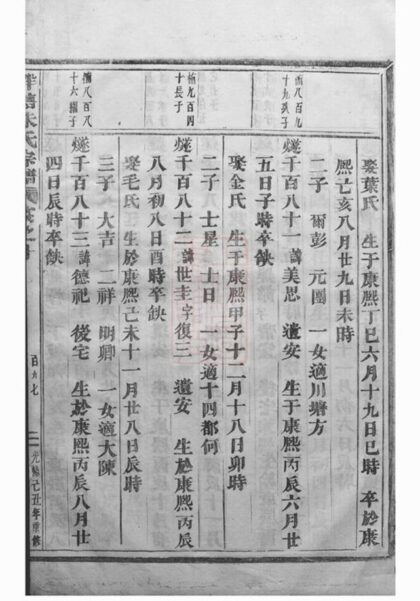 娶葉氏 生于康熙丁巳六月十九日巳時 卒於康
熙己亥八月廿九日未時
二子 爾彭 元團 一女適川塘方
燧千百八十一諱美思 遺安 生于康熙丙辰六月廿
五日子時卒缺
娶金氏 生于康熙甲子十二月十八日卯時
二子 士星 士日 一女適十四都何
燧千百八十二諱世圭字復三 遺安 生於康熙丙辰
八月初八日酉時卒缺
娶毛氏 生於康熙己未十一月廿八日辰時
三子 大吉 二祥 明卿 一女適大陳
燧千百八十三諱德祀 後宅 生於康熙丙辰八月廿
四日辰時卒缺
十九
十長子
十六
朱氏宗譜
百九七
光緒己丑年重修